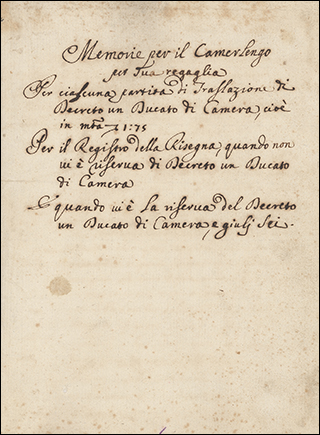 Memorie per il Camerlengo
per sua regaglia
Per ciascuna partita di Traslazione di
Decreto un Ducato di Camera, cioè
in mta 1:75
Per il Registro della Risegna, quando non
vi è riserva di Decreto un Ducato
di Camera
E quando vi è La riserva del Decreto
un Ducato di Camera, e giulj Sei.